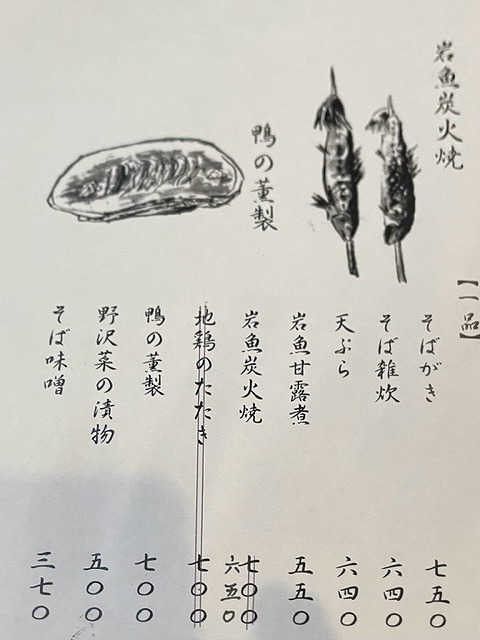 岩魚炭火焼
鴨の薫製
【一品】
そばがき 七五〇
そば雑炊 六四〇
天ぷら 六四〇
岩魚甘露煮 五五〇
岩魚炭火焼 七〇〇 六五〇
地鶏のたたき 七〇〇
鴨の薫製 七〇〇
野沢菜の漬物 五〇〇
そば味噌 三七〇